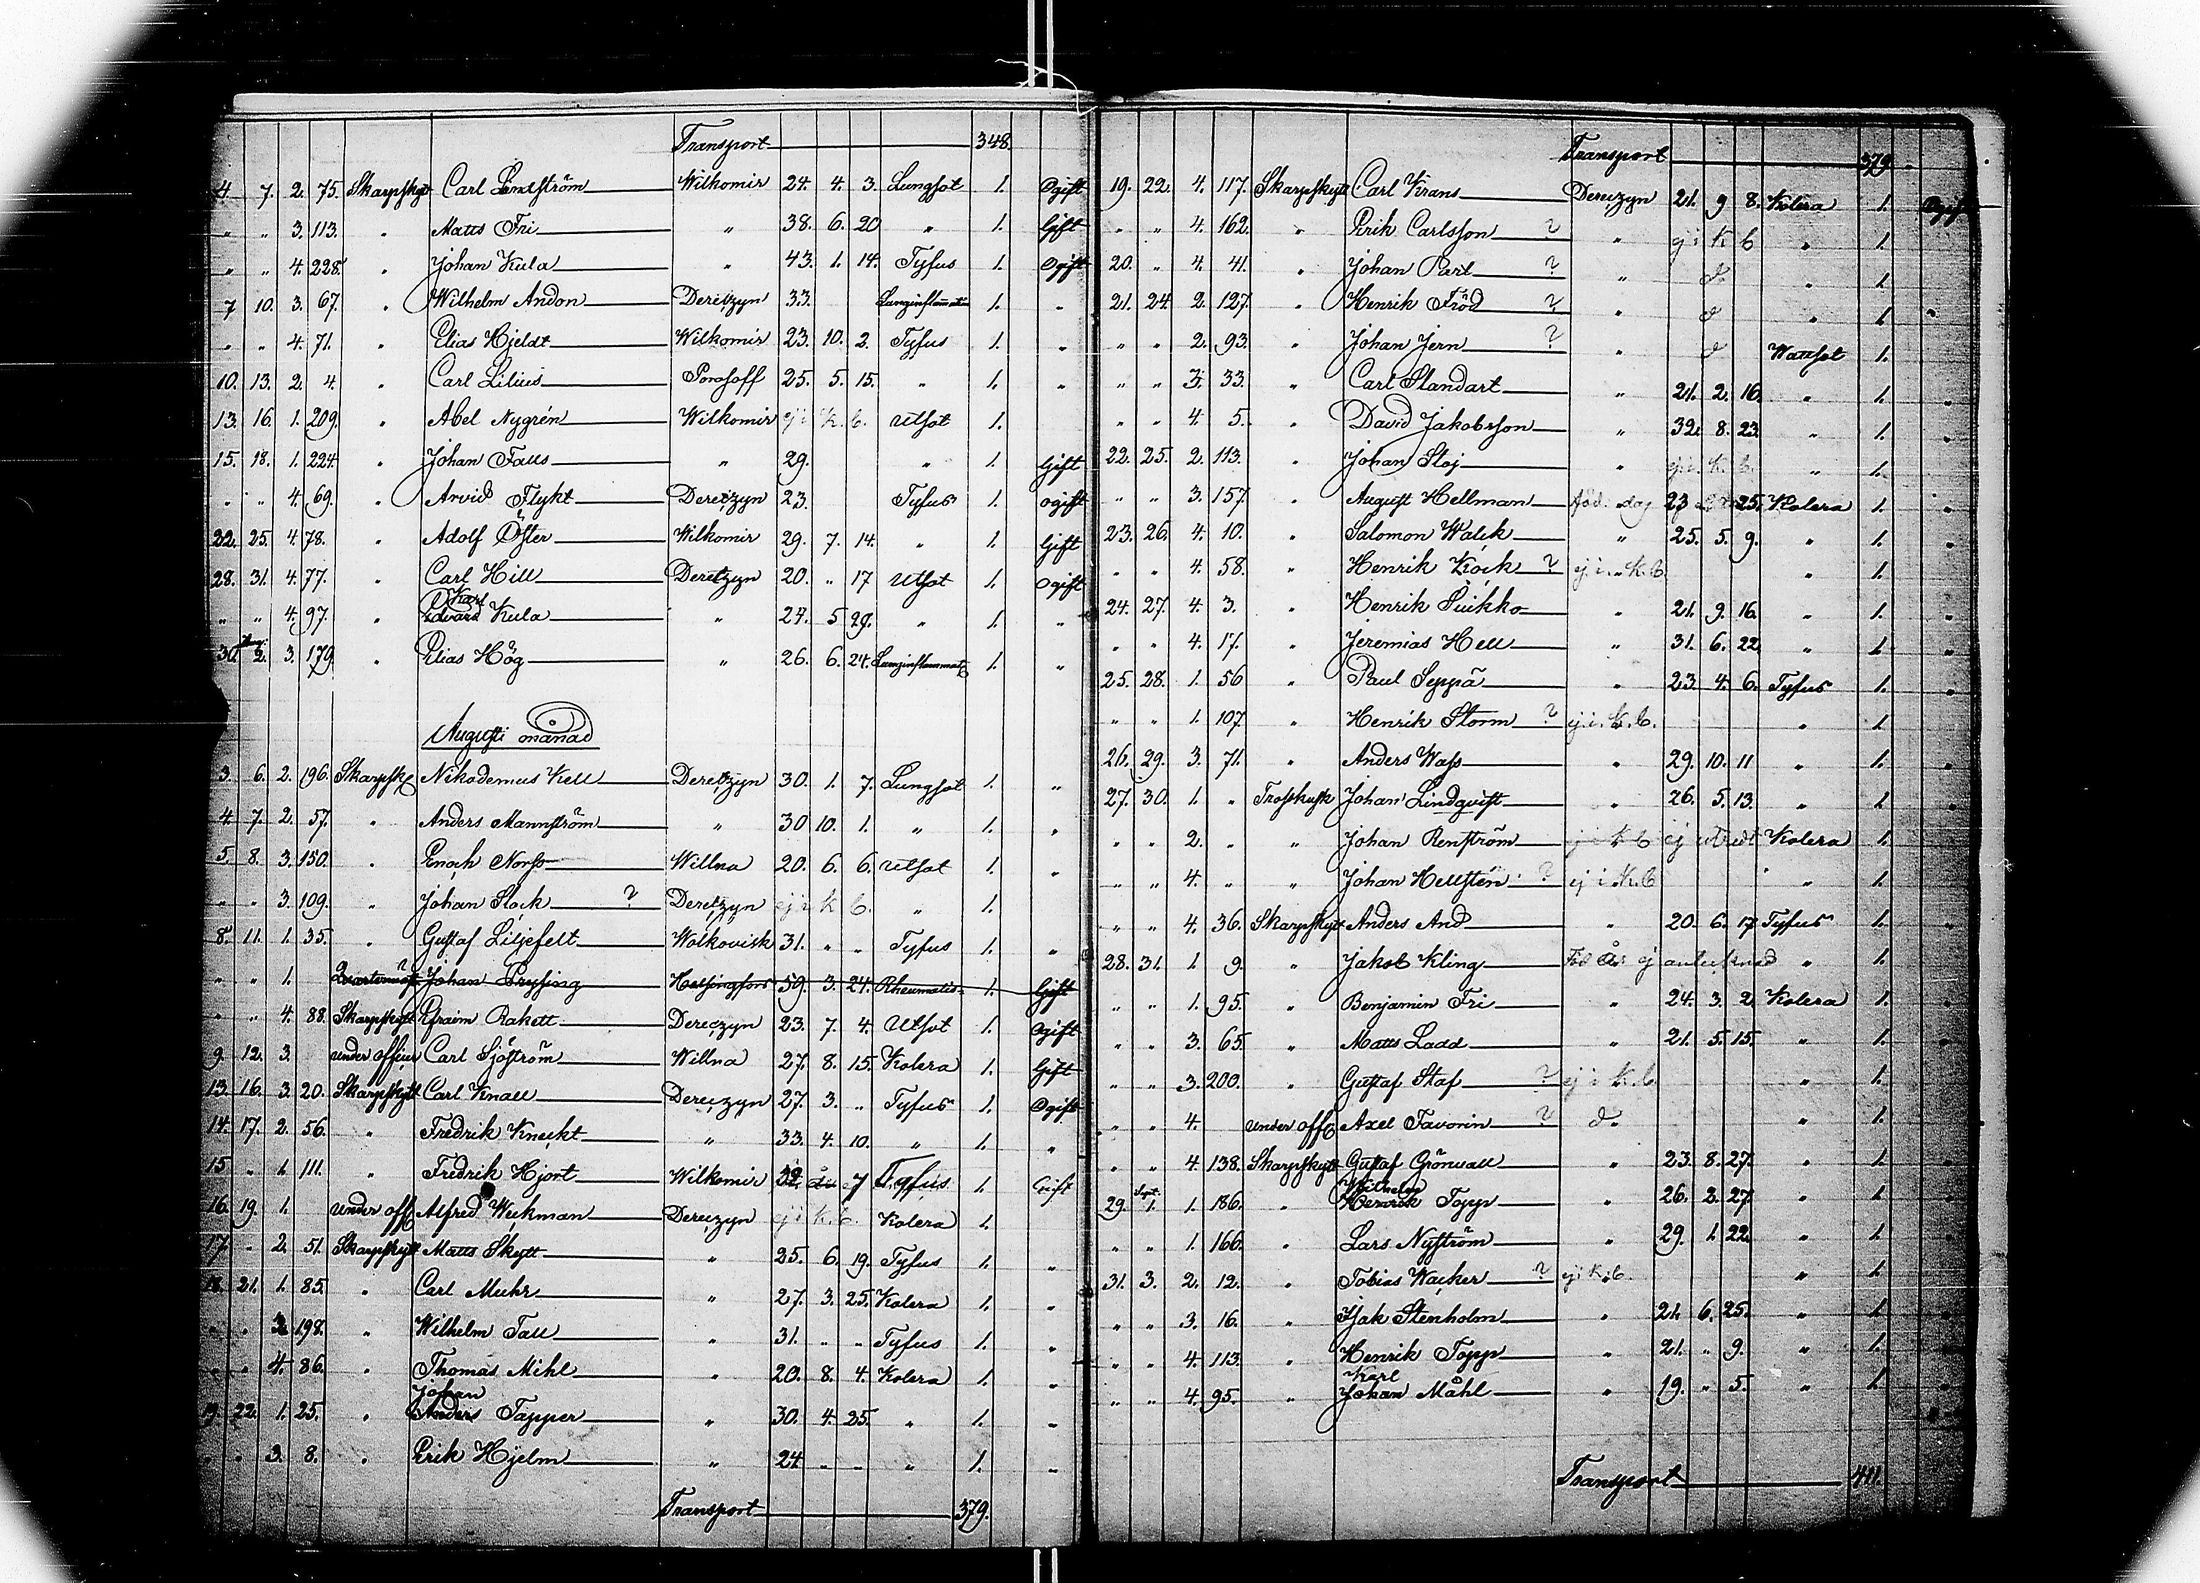 Transport 348.
4. 7. 2. 75. Skarpskytt Carl Lindström Wilkomir 24. 4. 3. Lungsot 1. Ogift
" " 3. 113. " Matts Fri " 38. 6. 20 " 1. Gift
" " 4. 228. " Johan Kula " 43. 1. 14. Tyfus 1. Ogift
7 10. 3. 67. " Wilhelm Andon Deretzyn 33. Lunginflammation 1. "
" " 4. 71. " Elias Hjeldt Wilkomir 23. 10. 2. Tyfus 1. "
10. 13. 2. 4. " Carl Lilius Porosoff 25. 5. 15. " 1. "
13. 16. 1. 209. " Abel Nygrén Wilkomir ej i K. b. Utsot 1.
15. 18. 1. 224. " Johan Falls " 29. " 1. Gift
" " 4. 69. " Arvid Flykt Dereczyn 23. Tyfus 1. Ogift
22. 25. 4. 78. " Adolf Öster Wilkomir 29. 7. 14. " 1. Gift
28. 31. 4. 77. " Carl Hill Deretzyn 20. " 17 Utsot 1. Ogift
" " 4. 97. " Karl Edvard Kula " 24. 5 29. " 1. "
30. Aug. 2. 3. 179 " Elias Hög " 26. 6. 24. Lunginflammat 1. "
Augusti månad
3. 6. 2. 196. Skarpsk Nikodemus Kell Deretzyn 30. 1. 7. Lungsot 1. "
4. 7. 2. 57. " Anders Mannström " 30 10. 1. " 1. "
5. 8. 3. 150. " Enoch Norss Willna 20. 6. 6. Utsot 1. "
" " 3. 109. " Johan Stock ? Deretzyn ej i K b. " 1.
8. 11. 1. 35. " Gustaf Liljefelt Wolkovisk 31. " " Tyfus 1. "
" " 1. Johan Prysing Helsingfors 59. 3. 24. Rheumatis 1. Gift
" " 4. 88. Skarpskytt Efraim Rakett Dereczyn 23. 7. 4. Utsot 1. Ogift
9. 12. 3. under officer Carl Sjöström Willna 27. 8. 15. Kolera 1. Gift
13. 16. 3. 20. Skarpskytt Carl Knall Dereczyn 27. 3. " Tyfus 1. Ogift
14. 17. 2. 56. " Fredrik Knecht " 33. 4. 10. " 1. "
15 " 1. 111. " Fredrik Hjort Wilkomir 32. 7 Tyfus 1. Gift
16. 19. 1. under off Alfred Wickman Dereczyn ej i K. b. Kolera 1.
17. " 2. 51. Skarpskytt Matts Skytt " 25. 6. 19. Tyfus 1. "
18. 21. 1. 85. " Carl Muhr " 27. 3. 25. Kolera 1. "
" " 3. 198. " Wilhelm Tall " 31. " " Tyfus 1. "
" " 4. 86. " Thomas Mihl " 20. 8. 4. Kolera 1. "
19. 22. 1. 25. " Johan Anders Tapper " 30. 4. 25. " 1. "
" " 3. 8. " Erik Hjelm " 24. " " " 1. "
Transport 379.
Transport 379
19. 22. 4. 117. Skarpskytt Carl Krans Dereczyn 21. 9 8. Kolera 1. Ogift
" " 4. 162. " Erik Carlsson ? " ej i K b " 1.
20. " 4. 41. " Johan Part ? " d " 1.
21. 24. 2. 127. " Henrik Fröd ? " d " 1.
" " 2. 93. " Johan Jern ? " d Wattsot 1.
" " 3. 33. " Carl Standart " 21. 2. 16. " 1. "
" " 4. 5. " David Jakobsson " 32. 8. 23. " 1. "
22. 25. 2. 113. " Johan Stoj " ej i K. b. " 1. "
" " 3. 157. " August Hellman född. dag 23 25. Kolera 1. "
23. 26. 4. 10. " Salomon Walck " 25. 5. 9. " 1. "
" " 4. 58. " Henrik Kock ? ej i K.b. " 1.
24. 27. 4. 3. " Henrik Suikko " 21. 9. 16. " 1. "
" " 4. 17. " Jeremias Hell " 31. 6. 22. " 1. "
25. 28. 1. 56 " Paul Seppä " 23. 4. 6. Tyfus 1. "
" " 1. 107 " Henrik Storm ? ej i K. b. " 1.
26. 29. 3. 71. " Anders Wass " 29. 10. 11 " 1. "
27. 30. 1. " Trosskusk Johan Lindqvist " 26. 5. 13. " 1. "
" " 2. " " Johan Renström ej i K b Kolera 1.
" " 4. " " Johan Hellstén ? ej i K.b " 1.
" " 4. 36. Skarpskytt Anders And " 20. 6. 17 Tyfus 1. "
28. 31. 1. 9. " Jakob Kling Föd. år ej antecknad " 1. "
" " 1. 95. " Benjamin Fri " 24. 3. 2. Kolera 1. "
" " 3. 65. " Matts Ladd " 21. 5. 15. " 1. "
" " 3. 200. " Gustaf Staf ? ej i K.b " 1.
" " 4. under off Axel Favorin ? d. " 1.
" " 4. 138. Skarpskytt Gustaf Grönvall " 23. 8. 27. " 1. "
29. Sept. 1. 1. 186. " Wilhelm Henrik Topp " 26. 2. 27. " 1. "
" " 1. 166. " Lars Nyström " 29. 1. 22. " 1. "
31. 3. 2. 12. " Tobias Wacker ? ej i K.b. " 1.
" " 3. 16. " Isak Stenholm " 21. 6. 25. " 1. "
" " 4. 113. " Henrik Topp " 21. " 9. " 1. "
" " 4. 95. " Karl Johan Måhl " 19. " 5. " 1. "
Transport 411.